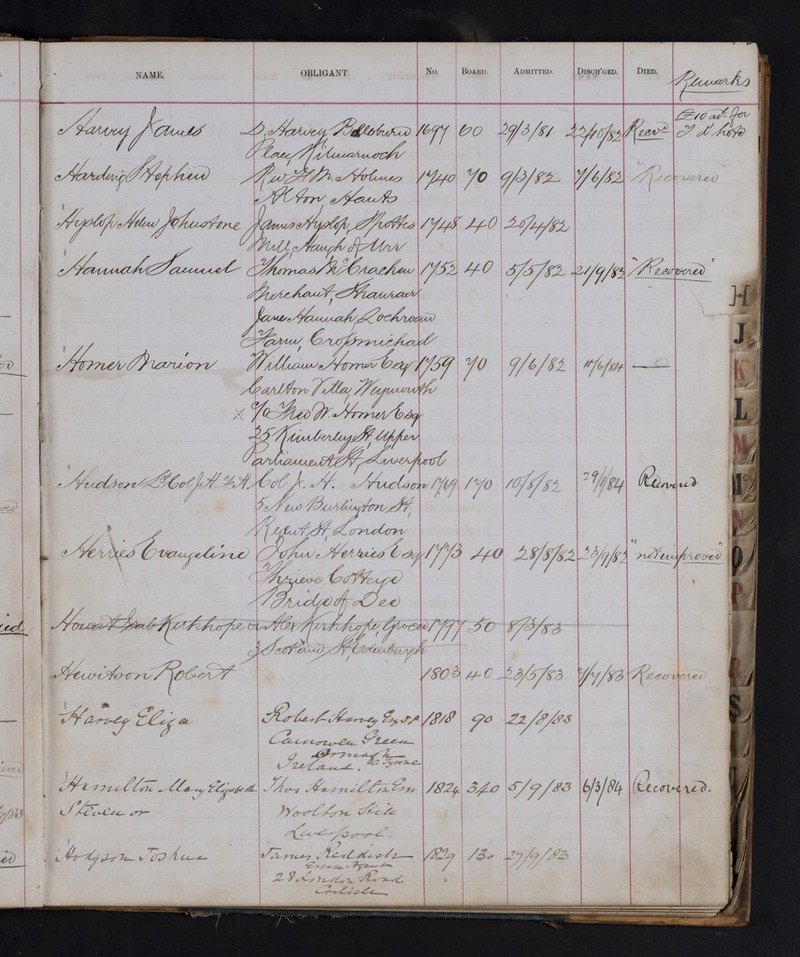 NAME. OBLIGANT. No. BOARD. ADMITTED. DISCH'GED. DIED. Remarks
Harvey James D. Harvey 1697 60 29/3/81 22/10/82 Recovd £10 adl for
Place Kilmarnock
Harding Stephen Rev Holmes 1740 70 9/3/82 7/6/82 "Recovered"
Alton, Hants
Hyslop Helen Johnstone James Hyslop, Spottes 1748 40 20/4/82
Mill, Haugh of Urr
Hannah Samuel Thomas McCrachen 1752 40 5/5/82 21/9/82 "Recovered"
Merchant, Stranraer
Jane Hannah, Lochroan
Farm, Crossmichael
Horner Marion William Horner Esq 1759 70 9/6/82 /6/84 —
Carlton Villa Weymouth
x C/o Theo W. Horner Esq
25 Kimberley St, Upper
Parliament St, Liverpool
Hudson Lt Col J. H. Col J. H. Hudson 1769 170 10/8/82 29/1/84 Recovered
5 New Burlington St,
Regent St, London
Herries Evangeline John Herries Esq 1773 40 28/8/82 23/9/82 "not improved"
Thrieve Cottage
Bridge of Dee
Howat Kirkhope or Alex Kirkhope, Grocer 1797 50 8/3/83
3 Scotland St, Edinburgh
Hewitson Robert 1803 40 23/5/83 7/7/83 Recovered
Harvey Eliza Robert Harvey Esq J.P. 1818 90 22/8/83
Green
Ireland. Co Tyrone
Hamilton Mary Elizabeth Thos Hamilton Esq 1824 340 5/9/83 6/3/84 Recovered.
Steven or Woolton
Liverpool.
Hodgson Joshua James Reddish 1829 130 27/9/83
28 London Road
Carlisle
H
J
K
L
M
N
O
P
R
S